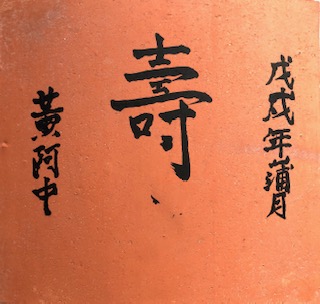 戊戌年蒲月
壽
黃阿中